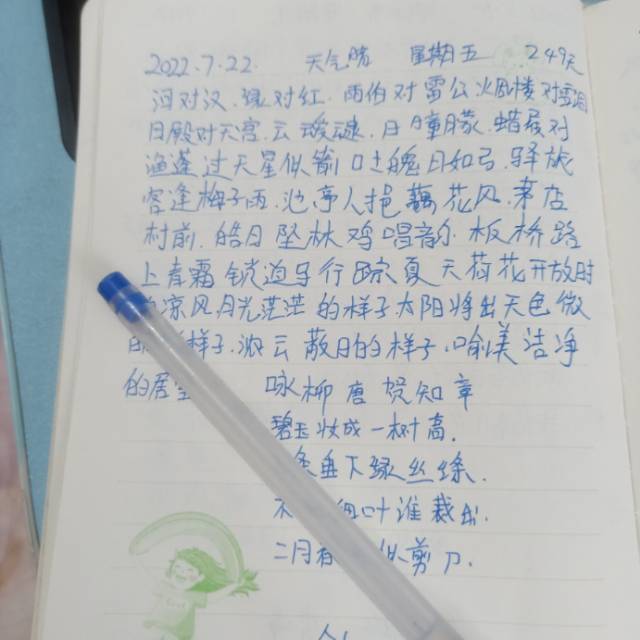 2022.7.22 天气晴 星期五 249天
河对汉.绿对红.雨伯对雷公.火因楼对雪洞
月殿对天宫.云叆叇.日曈朦.蜡屐对
渔蓬过天星似箭吐魄月如弓.驿旅
客逢梅子雨.池亭人挹藕花风.茅店
村前.皓月坠林鸡唱韵.板桥路
上青霜锁迫马行踪夏天荷花开放时
凉风月光茫茫的样子太阳将出天色微
样子.浓云蔽日的样子.喻美洁净
的居
咏柳唐贺知章
碧玉妆成一树高.
条垂下绿丝绦.
不 细叶谁裁出.
二月春 似剪刀.